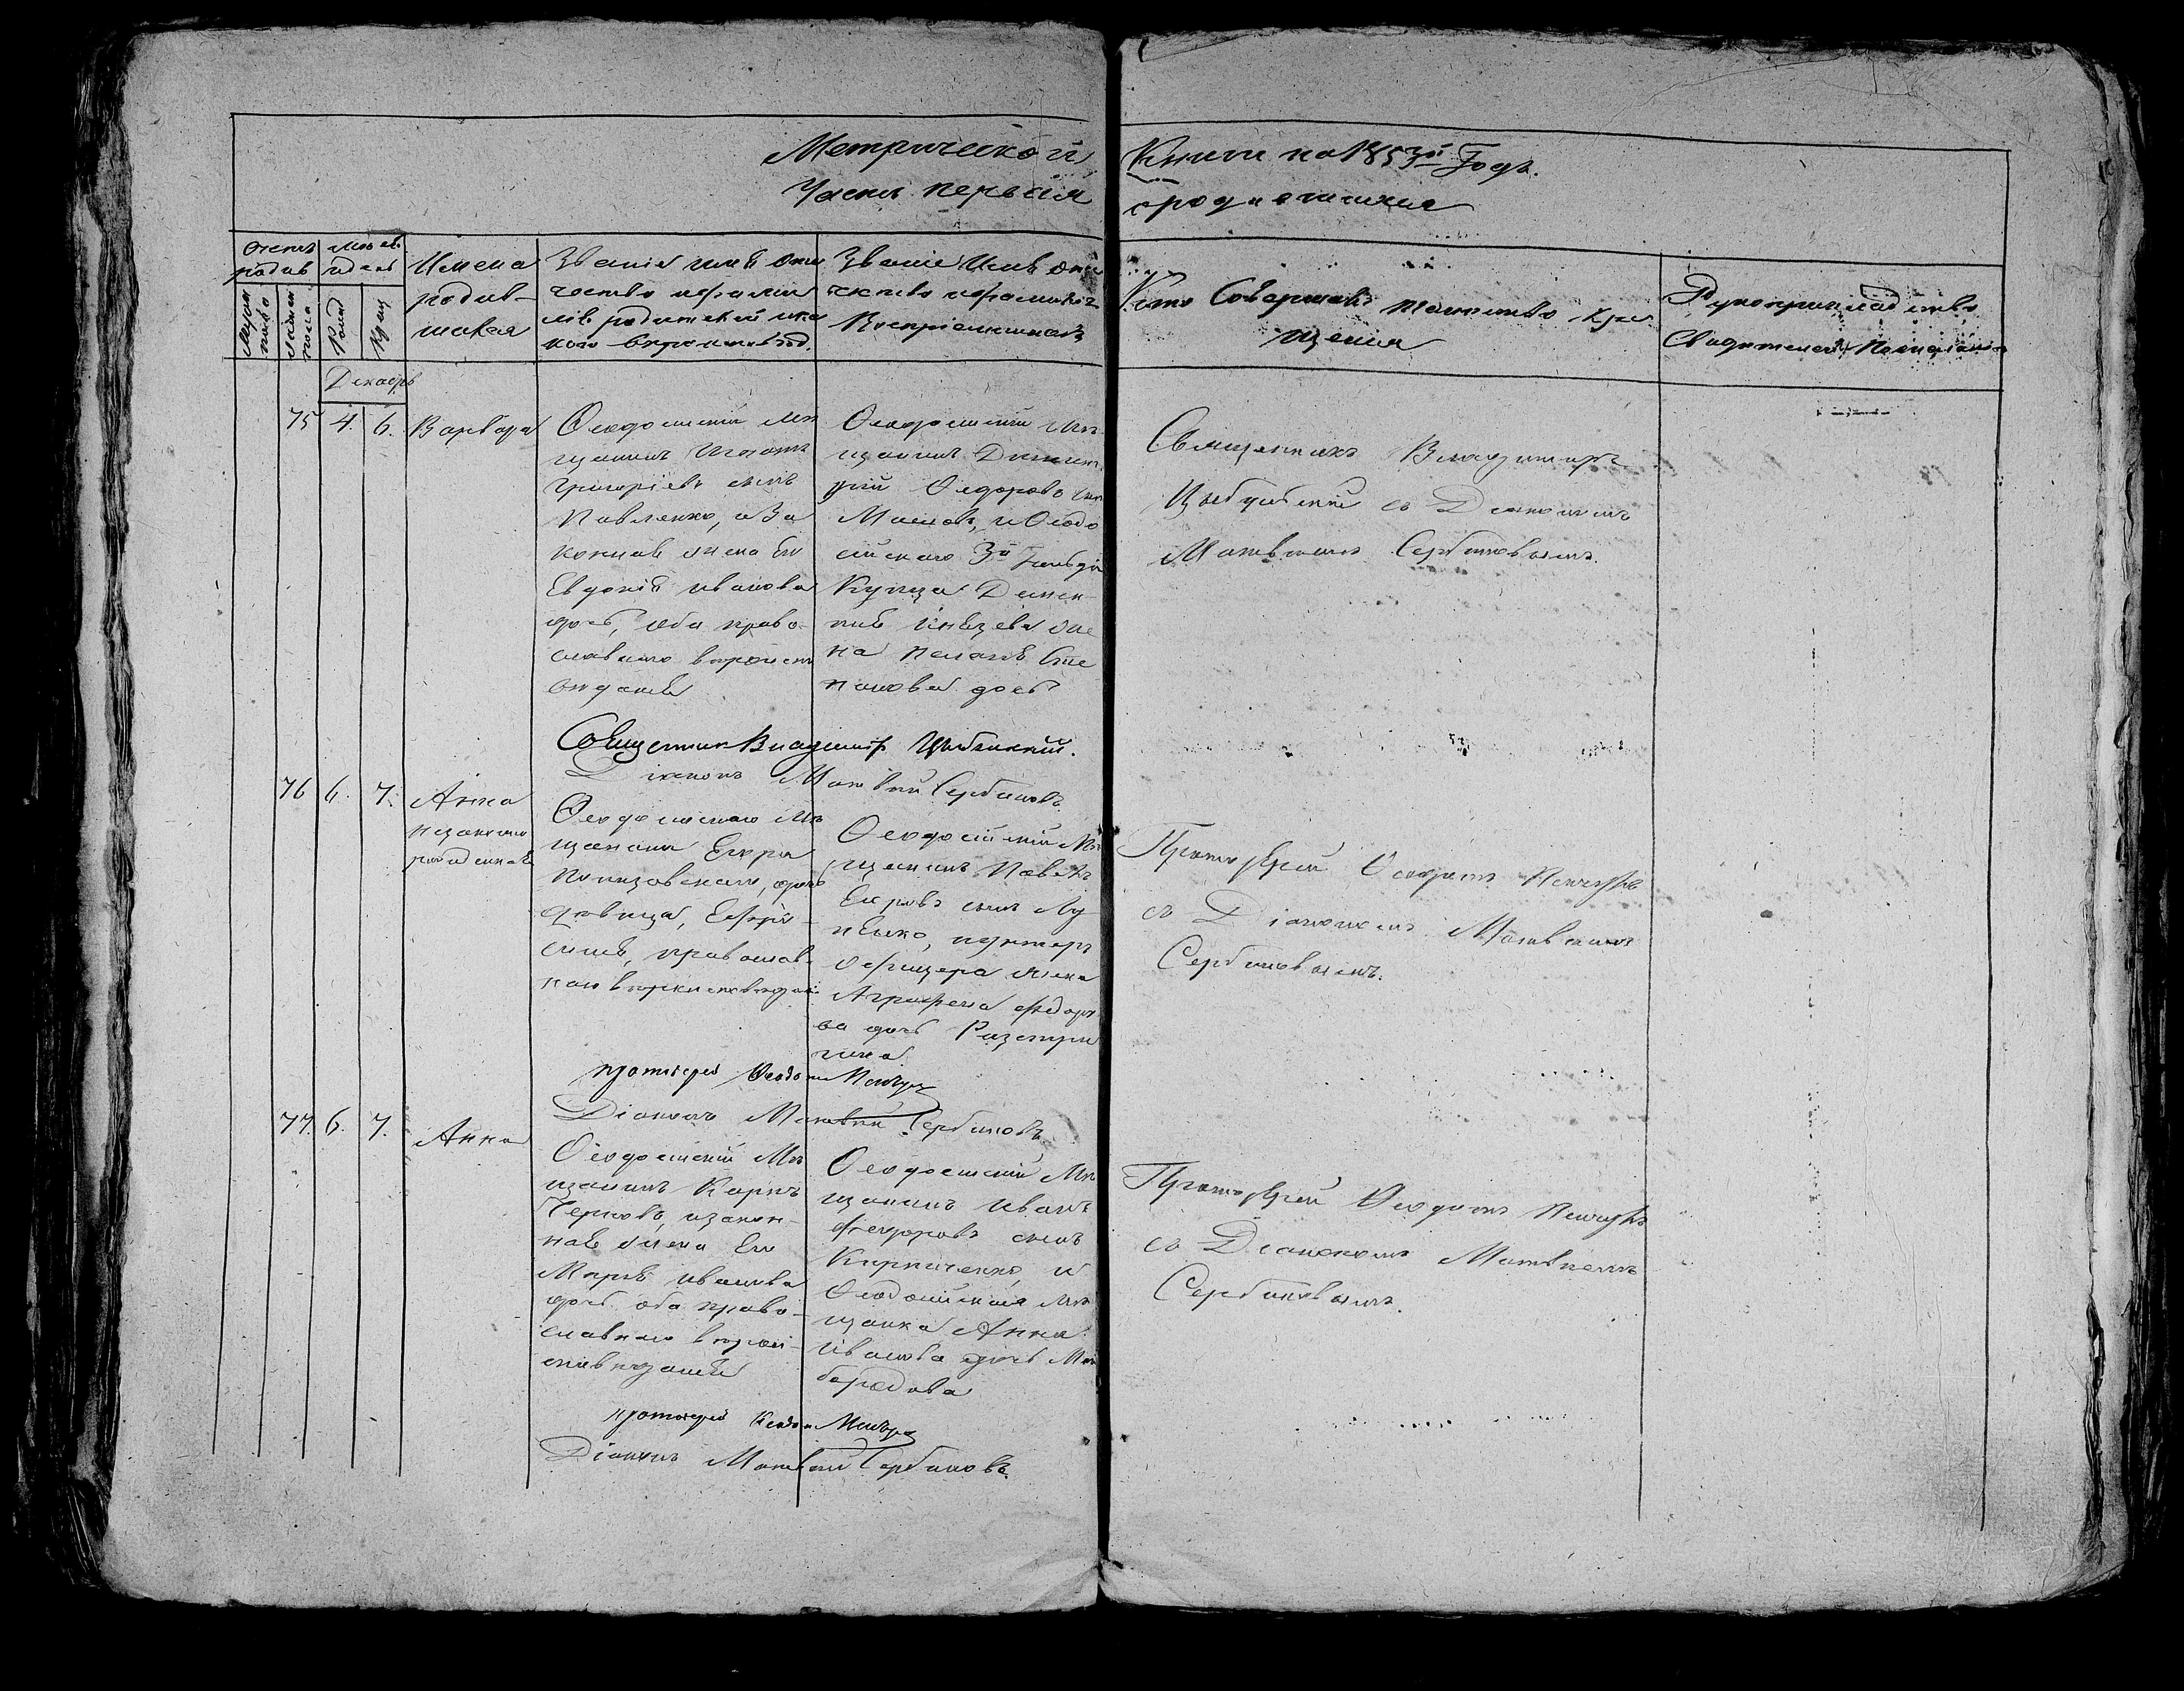 Метрической Книги на 1853й Годъ.
Часть первая о родившихся
Счетъ родив
Мѣсяц. и день
Имена
родив-
шихся
Званіе имя отче
чество и фамил
лія родителей и ка
кого вѣроисповѣд.
Званіе Имя отче
чество и фамилія
Воспріемниковъ
Кто Совершалъ таинство кре
щенія
Рукоприкладство
Свидетелей по желанію
Мужск
пола
Женск
пола
Рожд
Крещ
Декабрь
75 4. 6. Варвара
Ѳеодосійскій мѣ
щанинъ Игнатъ
Григорьевъ сынъ
Павленко, и За
конная жена Его
Евдокія Иванова
дочь, оба право-
славнаго вѣроисп
овѣданія
Ѳеодосійскій мѣ-
щанинъ Димит
рій Ѳедоровъ сын
Масловъ, и Ѳеодо
сійскаго 3й Гильдіи
Купца Демен-
тія Князева же
на Пелагія Сте
панова дочь
Священникъ Владимиръ
Цыбульскій съ Діакономъ
Матвѣемъ Сербиновымъ.
Священник Владимір Цыбульскій.
Діаконъ Матвѣй Сербиновъ
76 6. 7. Анна
незаконно
рожденная
Ѳеодосійскаго мѣ
щанина Егора
Понизовскаго, дочь
дѣвица, Ефро-
синія, православ-
наго вѣроисповѣдан.
Ѳеодосійскій Мѣ
щанинъ Павелъ
Егоровъ сынъ Лу
ценко, и унтеръ
офицера жена
Агрофена Федоро
ва дочь
Протоіерей Ѳеодотъ
съ Діакономъ Матвѣемъ
Сербиновымъ.
протоіерей Ѳеодотъ
Діаконъ Матвѣй Сербиновъ
77. 6. 7. Анна
Ѳеодосійскій Мѣ
щанинъ Карпъ
Черновъ, и закон-
ная жена Его
Марія Иванова
дочь оба право-
славнаго вѣрои-
сповѣданія
Ѳеодосійскій Мѣ
щанинъ Иванъ
Федоровъ сынъ
Кириченко, и
Ѳеодосійская мѣ
щанка Анна
Иванова дочь
Протоіерей Ѳеодотъ
съ Діакономъ Матвѣемъ
Сербиновымъ.
протоіерей Ѳеодотъ
Діаконъ Матвѣй Сербиновъ.